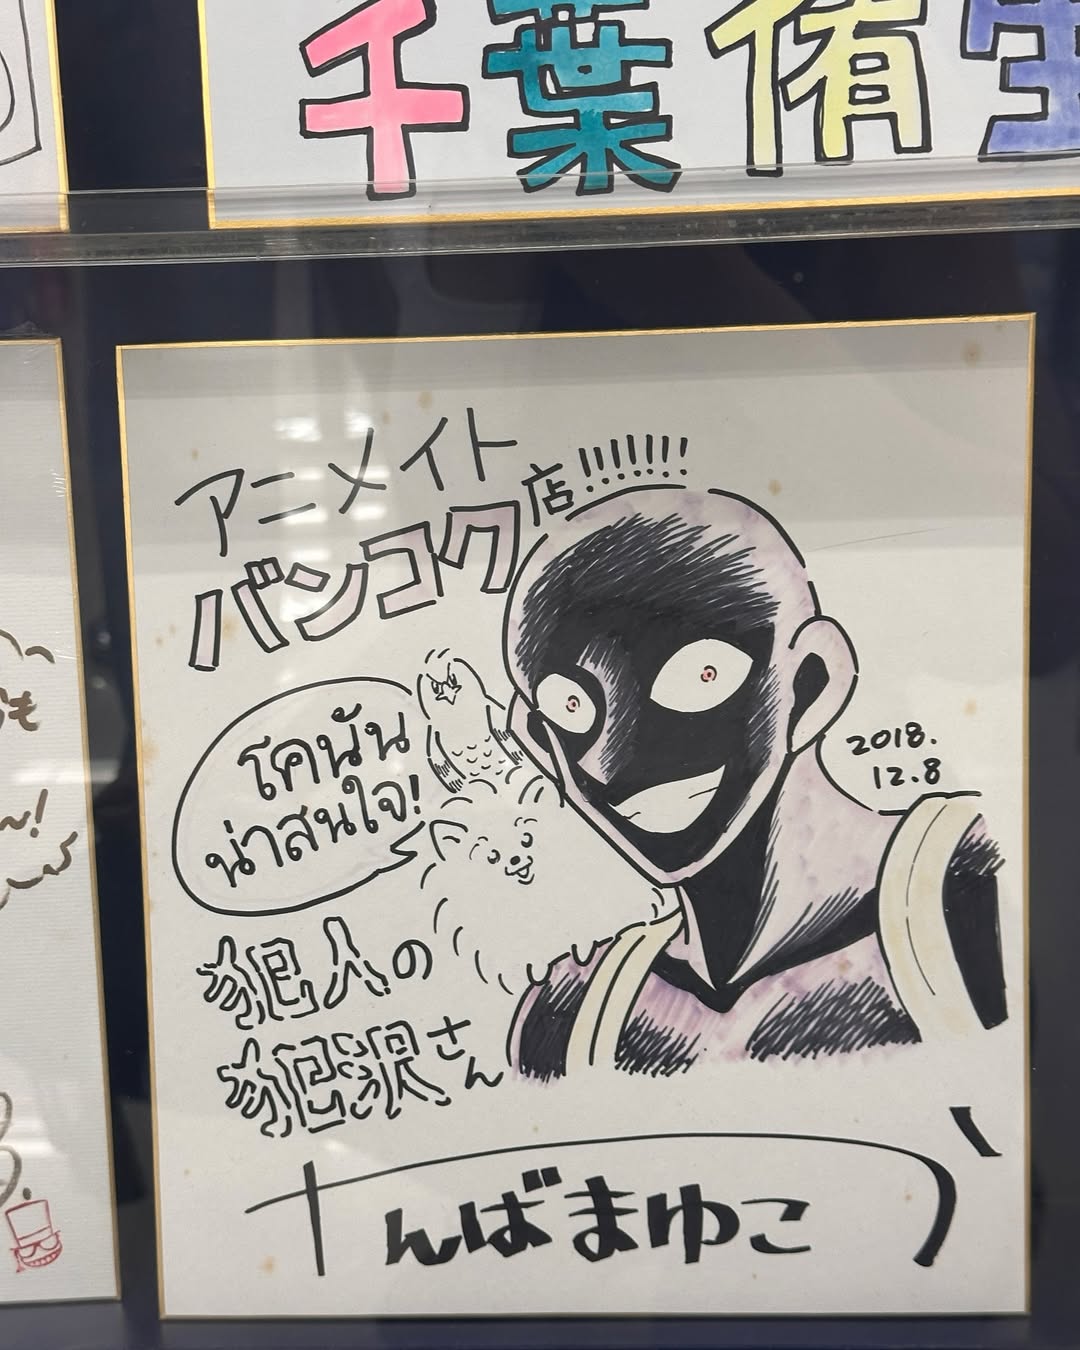 千葉侑生
アニメイト
バンコク店!!!!!!!
โคนัน
น่าสนใจ!
2018.
12.8
犯人の
犯沢さん
かんばまゆこ